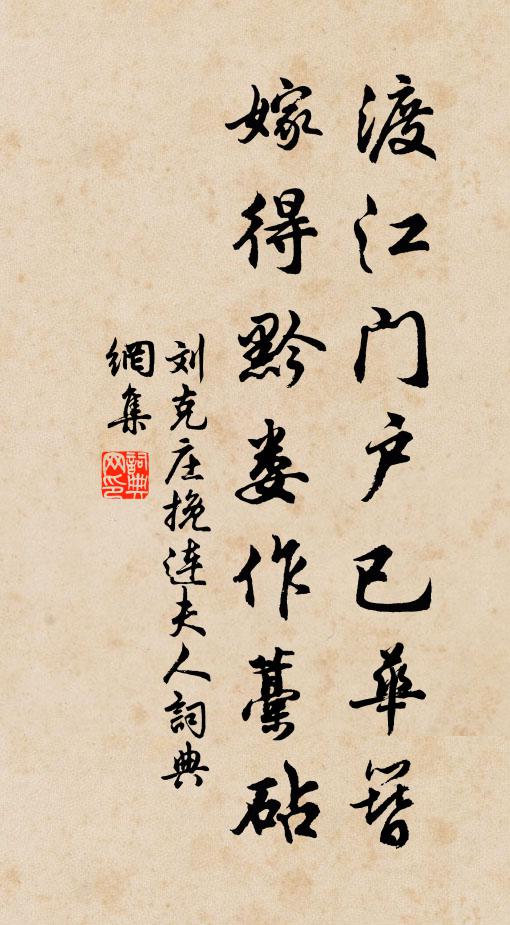 渡江门户已華簪
嫁得黔娄作藁砧
刘克庄挽连夫人詞典
網集
詞典網印